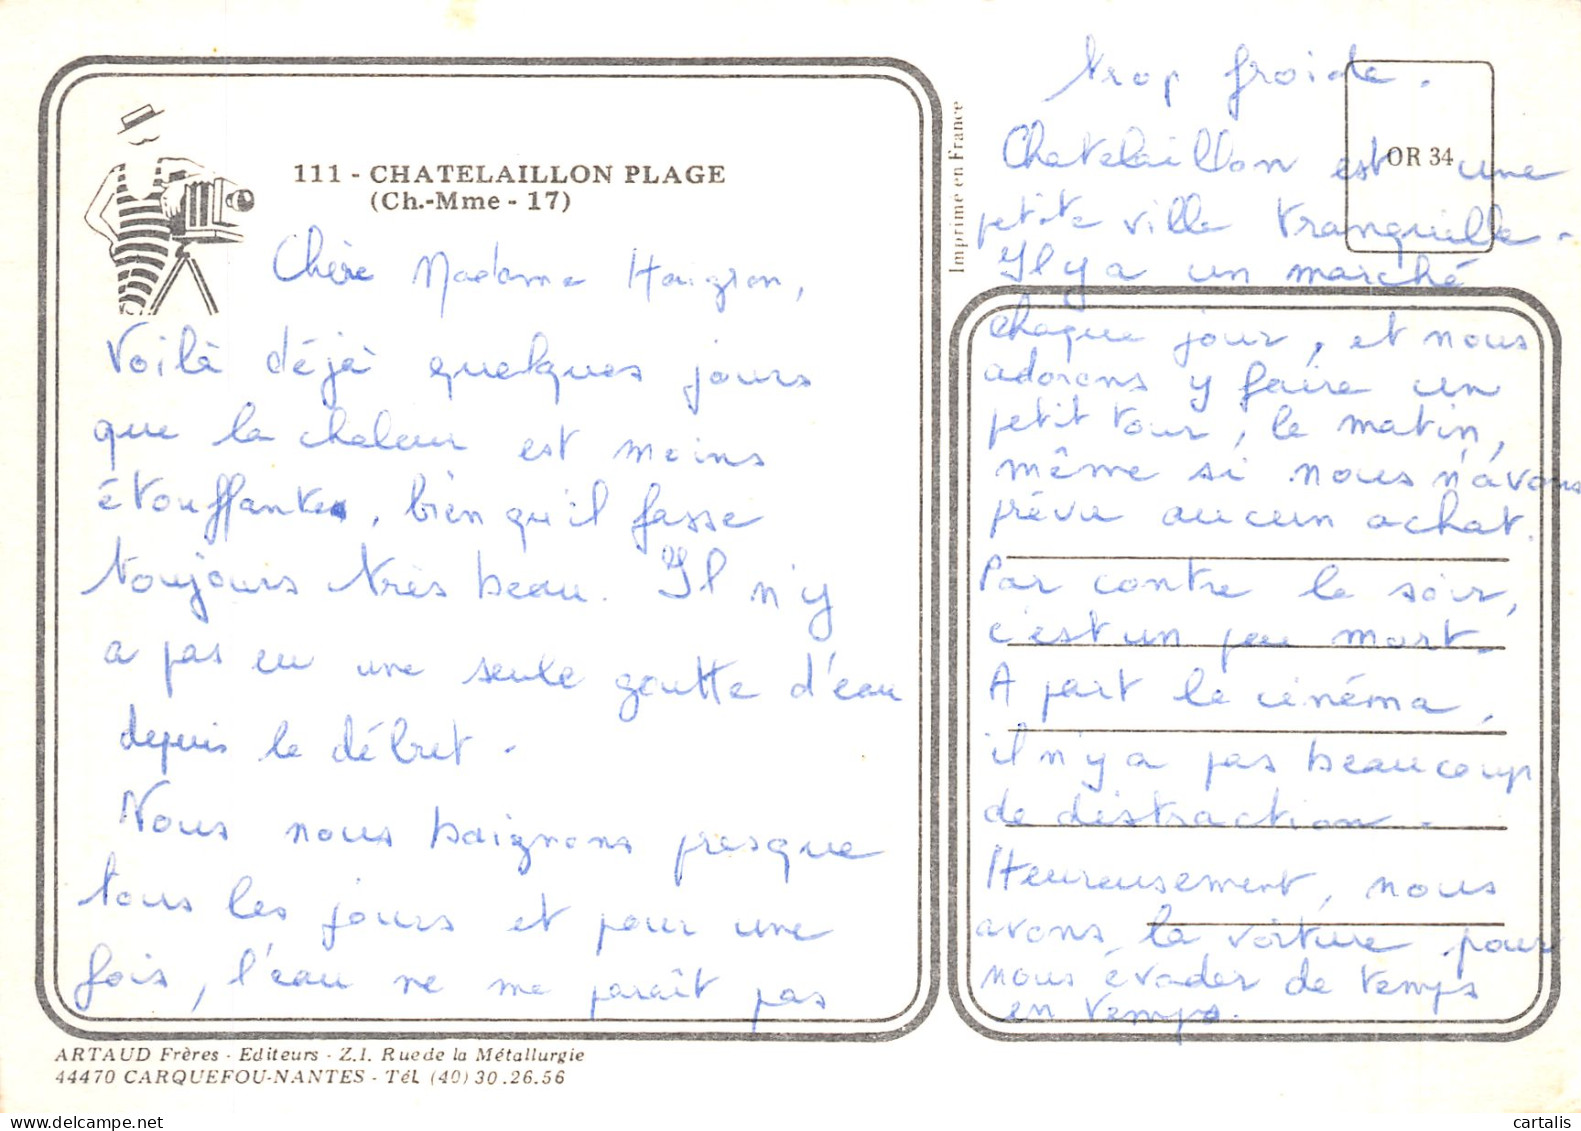 111 - CHATELAILLON PLAGE
(Ch.-Mme - 17)
Chère Madame Haigron,
Voilà déjà quelques jours
que la chaleur est moins
étouffante, bien qu'il fasse
toujours très beau. Il n'y
a pas eu une seule goutte d'eau
depuis le début.
Nous nous baignons presque
tous les jours et pour une
fois, l'eau ne me paraît pas
ARTAUD Frères - Editeurs - Z.I. Rue de la Métallurgie
44470 CARQUEFOU-NANTES - Tél. (40) 30.26.56
Imprimé en France
OR 34
trop froide.
Chatelaillon est une
petite ville tranquille.
Il y a un marché
chaque jour, et nous
adorons y faire un
petit tour, le matin,
même si nous n'avons
prévu aucun achat.
Par contre le soir,
c'est un peu mort.
A part le cinéma,
il n'y a pas beaucoup
de distraction.
Heureusement, nous
avons la voiture pour
nous évader de temps
en temps.
cartalis